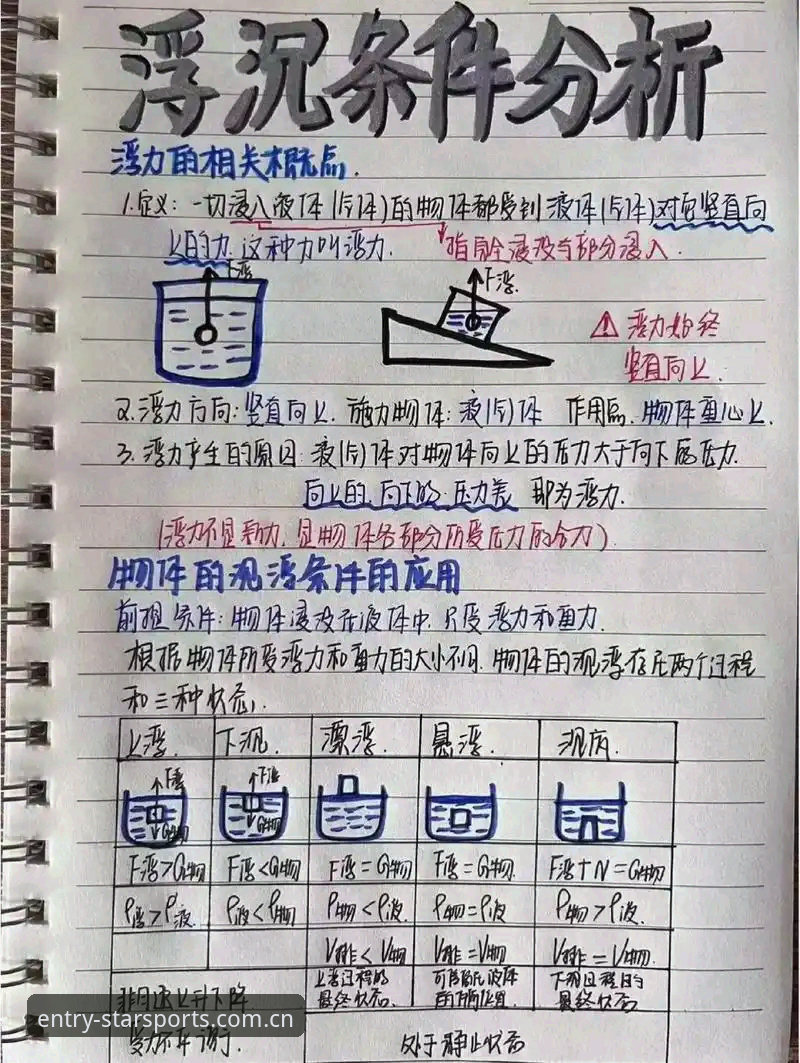 浮沉条件分析
浮力的相关概念.
1.定义: 一切浸入液体(气体)的物体都受到液体(气体)对它竖直向
上的力.这种力叫浮力.
指完全浸没与部分浸入.
F浮
F浮.
⚠ 浮力始终
竖直向上.
2.浮力方向:竖直向上. 施力物体:液(气)体 作用点.物体重心上.
3.浮力产生的原因:液(气)体对物体向上的压力大于向下的压力.
向上的.向下的.压力差 即为浮力.
(浮力不是新力.是物体各部分所受压力的合力).
物体的沉浮条件的应用
前提条件:物体浸没在液体中.只受浮力和重力.
根据物体所受浮力和重力的大小不同.物体的沉浮存在两个过程
和三种状态.
上浮. 下沉. 漂浮. 悬浮. 沉底.
F浮 F浮
G物 G物
F浮>G物 F浮<G物 F浮=G物 F浮=G物. F浮+N=G物
ρ液<ρ物 ρ物<ρ液 ρ物=ρ液 ρ物>ρ液.
V排<V物 V排=V物 V排=V物.
上浮过程的 可停留在液体 下沉过程的
最终状态. 最终状态
处于静止状态
entry-starsports.com.cn